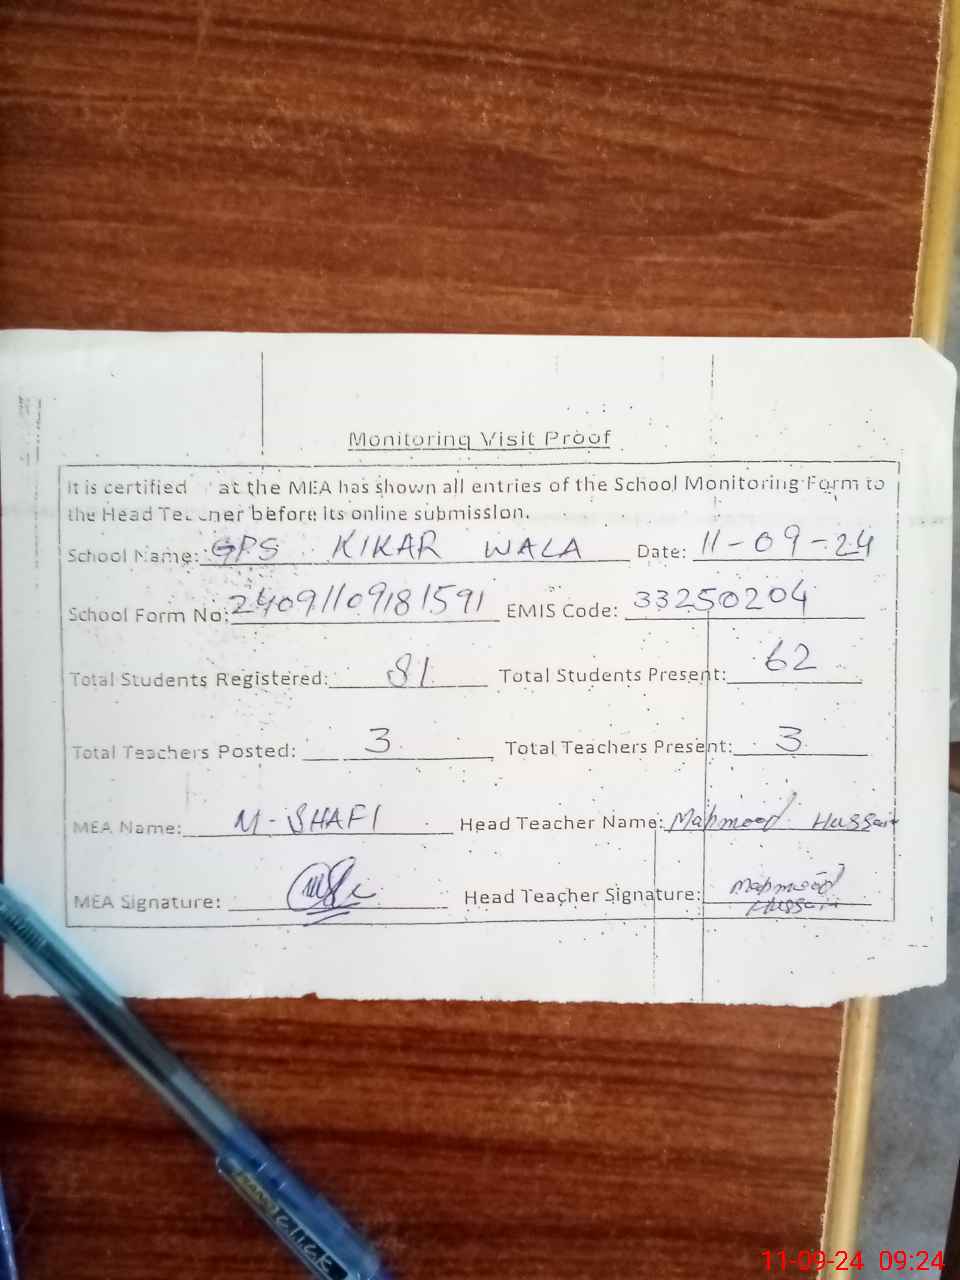 Monitoring Visit Proof
It is certified at the MEA has shown all entries of the School Monitoring Form to
the Head Teacher before its online submission.
School Name: GPS KIKAR WALA Date: 11-09-24
School Form No: 24091109181591 EMIS Code: 33250204
Total Students Registered: 81 Total Students Present: 62
Total Teachers Posted: 3 Total Teachers Present: 3
MEA Name: M-SHAFI Head Teacher Name: Mahmood Hussain
MEA Signature: Head Teacher Signature: Mahmood
Hussain
CLICK
11-09-24 09:24